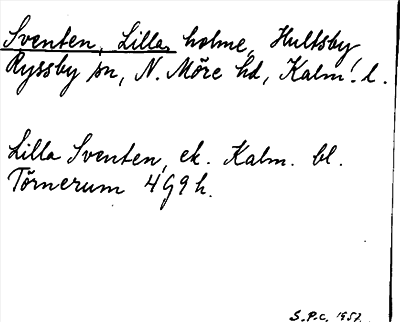 Sventen, Lilla, holme, Hultsby,
Ryssby sn, N. Möre hd, Kalm. l.
Lilla Sventen, ek. Kalm. bl.
Törnerum 4G9h.
S.P.C. 1952